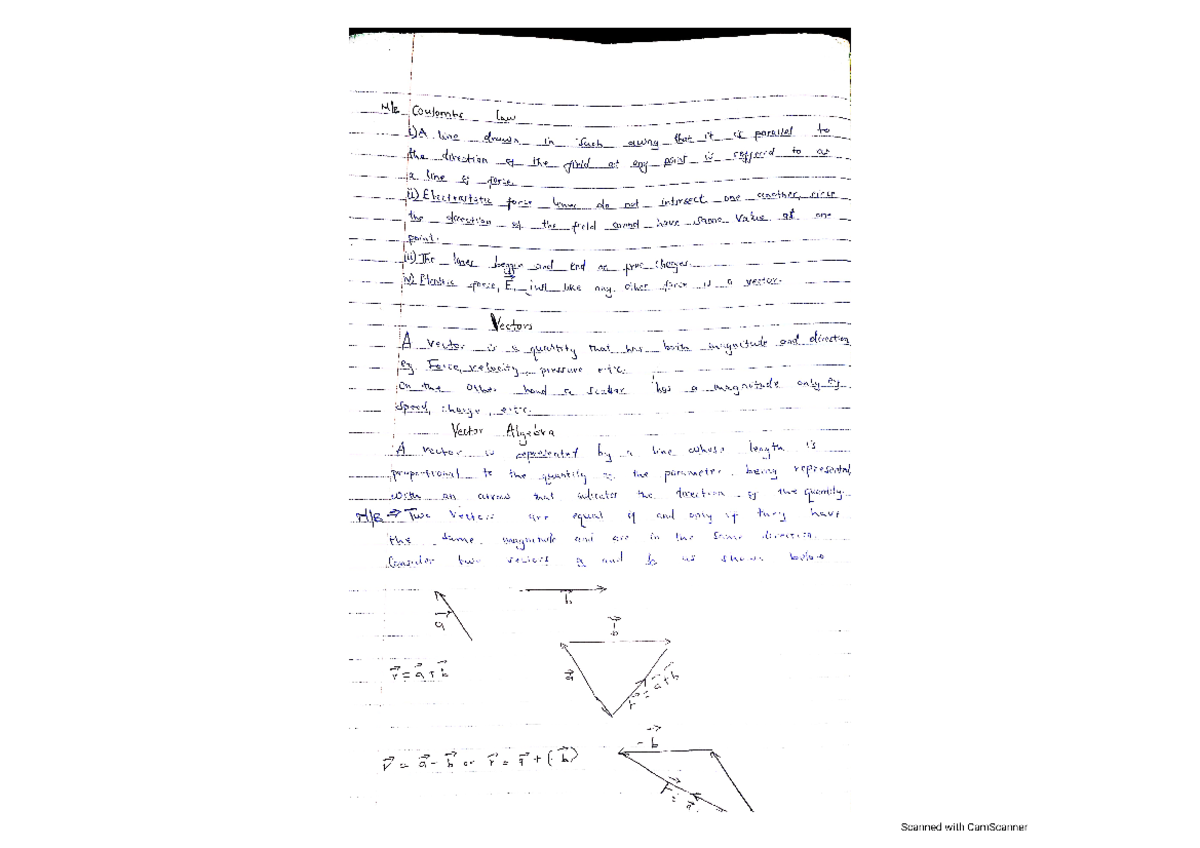 N/B Coulombs Law
i) A line drawn in such away that it is parallel to
the direction of the field at any point is reffered to as
a line of force.
ii) Electrostatic force lines do not intersect one another, since
the direction of the field cannot have same value at one
point.
iii) The lines begin and end on charges.
iv) Electric force, E, just like any other force is a vector.
Vectors
A vector is a quantity that has both magnitude and direction
eg. Force, velocity, pressure e.t.c.
On the other hand a scalar has a magnitude only eg
speed, charge, e.t.c.
Vector Algebra
A vector is represented by a line whose length is
proportional to the quantity of the parameter being represented
with an arrow that indicates the direction of the quantity.
N/B ⇒ Two vectors are equal if and only if they have
the same magnitude and are in the same direction.
Consider two vectors a and b as shown below
a⃗ b⃗
b⃗
a⃗
r⃗ = a⃗ + b⃗ r⃗ = a⃗ + b⃗
-b⃗
r⃗ = a⃗ - b⃗ or r⃗ = a⃗ + (-b⃗)
r⃗ = a⃗
Scanned with CamScanner